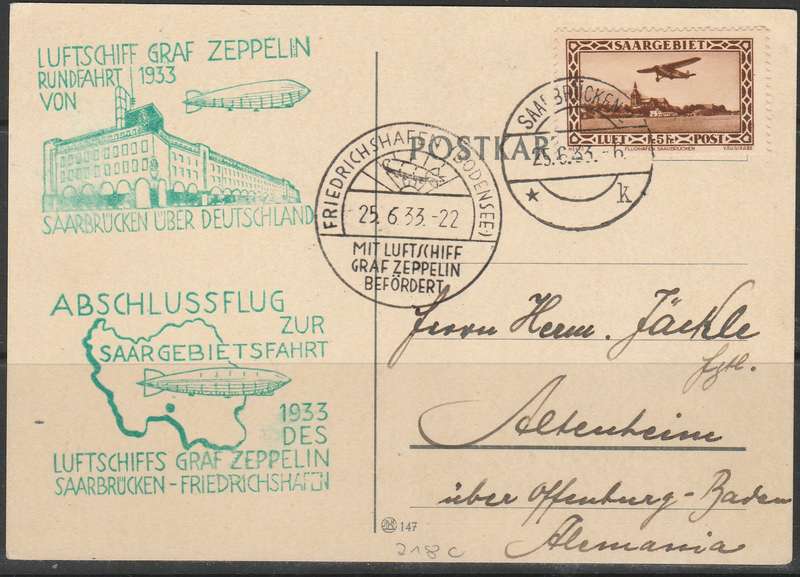 LUFTSCHIFF GRAF ZEPPELIN
RUNDFAHRT 1933
VON
SAARBRÜCKEN ÜBER DEUTSCHLAND
ABSCHLUSSFLUG
ZUR
SAARGEBIETSFAHRT
1933
DES
LUFTSCHIFFS GRAF ZEPPELIN
SAARBRÜCKEN - FRIEDRICHSHAFEN
POSTKAR
FRIEDRICHSHAFEN (BODENSEE)
25.6.33.-22
MIT LUFTSCHIFF
GRAF ZEPPELIN
BEFÖRDERT
SAARBRÜCKEN
25.6.33.-6
* k
SAARGEBIET
LUFT 5 Fr. POST
FLUGHAFEN SAARBRÜCKEN
Herrn Herm. Jäckle
Altenheim
über Offenburg-Baden
Alemania
147
218 c